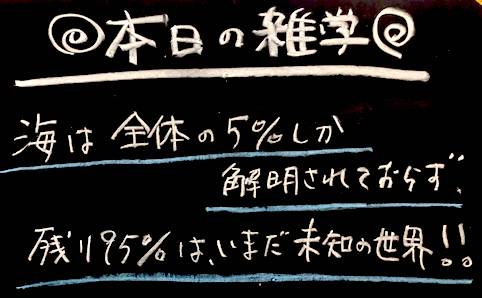 ◎本日の雑学◎
海は全体の5%しか
解明されておらず、
残り95%は、いまだ未知の世界!!